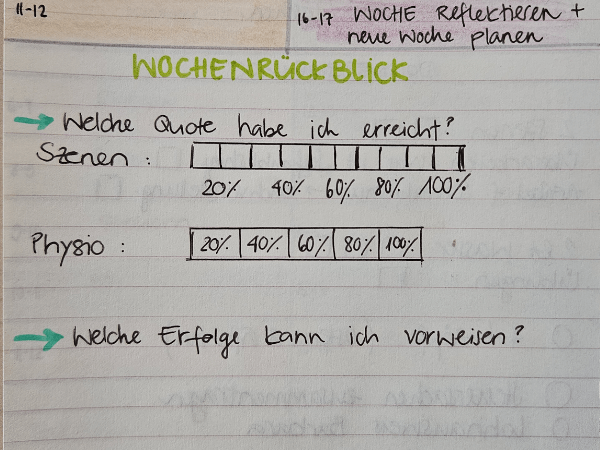 11-12
16-17 WOCHE Reflektieren +
neue Woche planen
WOCHENRÜCKBLICK
→ Welche Quote habe ich erreicht?
Szenen :
20% 40% 60% 80% 100%
Physio : 20% 40% 60% 80% 100%
→ Welche Erfolge kann ich vorweisen?